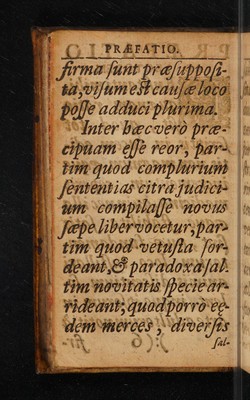 PRÆFATIO.
firma ſunt præſuppoſi-
ta, viſum eſt cauſæ loco
poſſe adduci plurima.
Inter hæc verò præ-
cipuam eſſe reor, par-
tim quod complurium
ſententias citra judici-
um compilaſſe novus
ſæpe liber vocetur, par-
tim quod vetuſta ſor-
deant, & paradoxa ſal-
tim novitatis ſpecie ar-
rideant; quod porrò eę-
dem merces, diverſis
ſal-